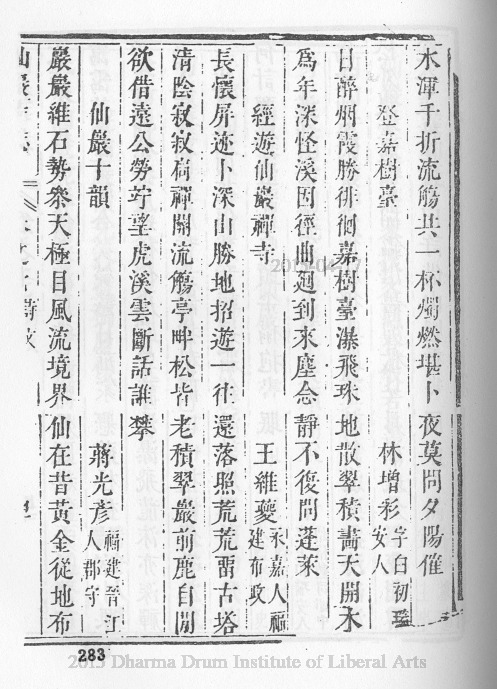 水渾千折流觴共一杯燭燃堪卜夜莫問夕陽催
登嘉樹臺 林增彩字白初瑞安人
日醉烟霞勝徘徊嘉樹臺瀑飛珠地散翠積畵天開水
爲年深怪溪因徑曲廻到來塵念靜不復問蓬萊
經遊仙巖禪寺 王維夔永嘉人福建布政
長懷屏迹卜深山勝地招遊一往還落照荒荒畱古塔
清陰寂寂肩禪關流觴亭畔松皆老積翠巖前鹿自閒
欲借遠公勞竚望虎溪雲斷話誰攀
仙巖十韻 蔣光彥福建晉江人郡守
巖巖維石勢叅天極目風流境界仙在昔黃金從地布
283
2013 Dharma Drum Institute of Liberal Arts